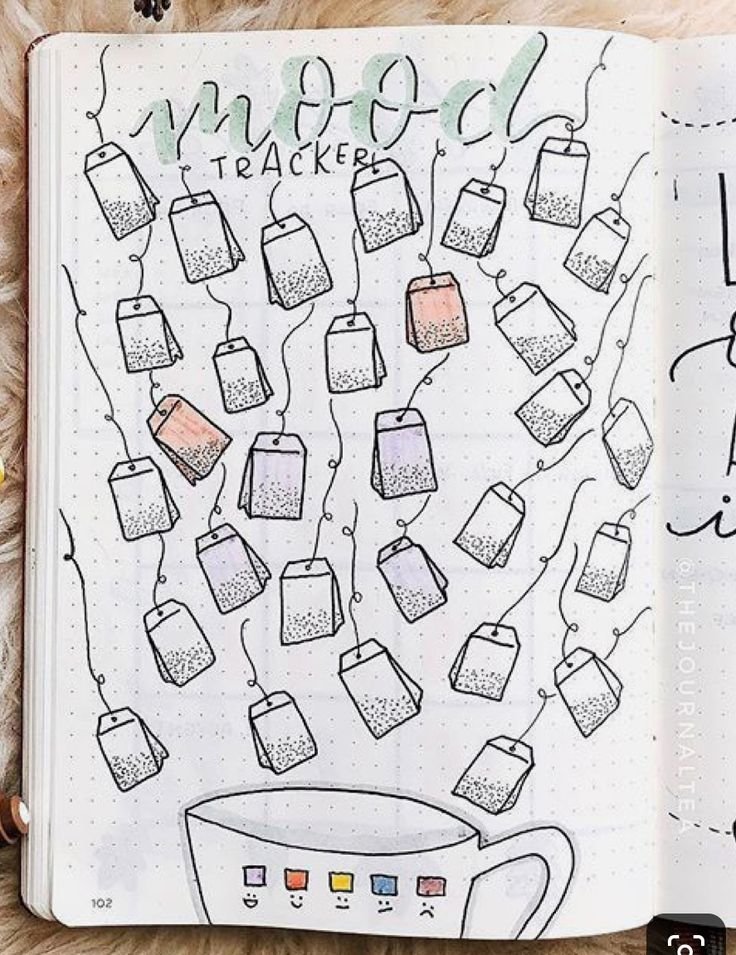 mood
TRACKER
102
@THEJOURNALTEA